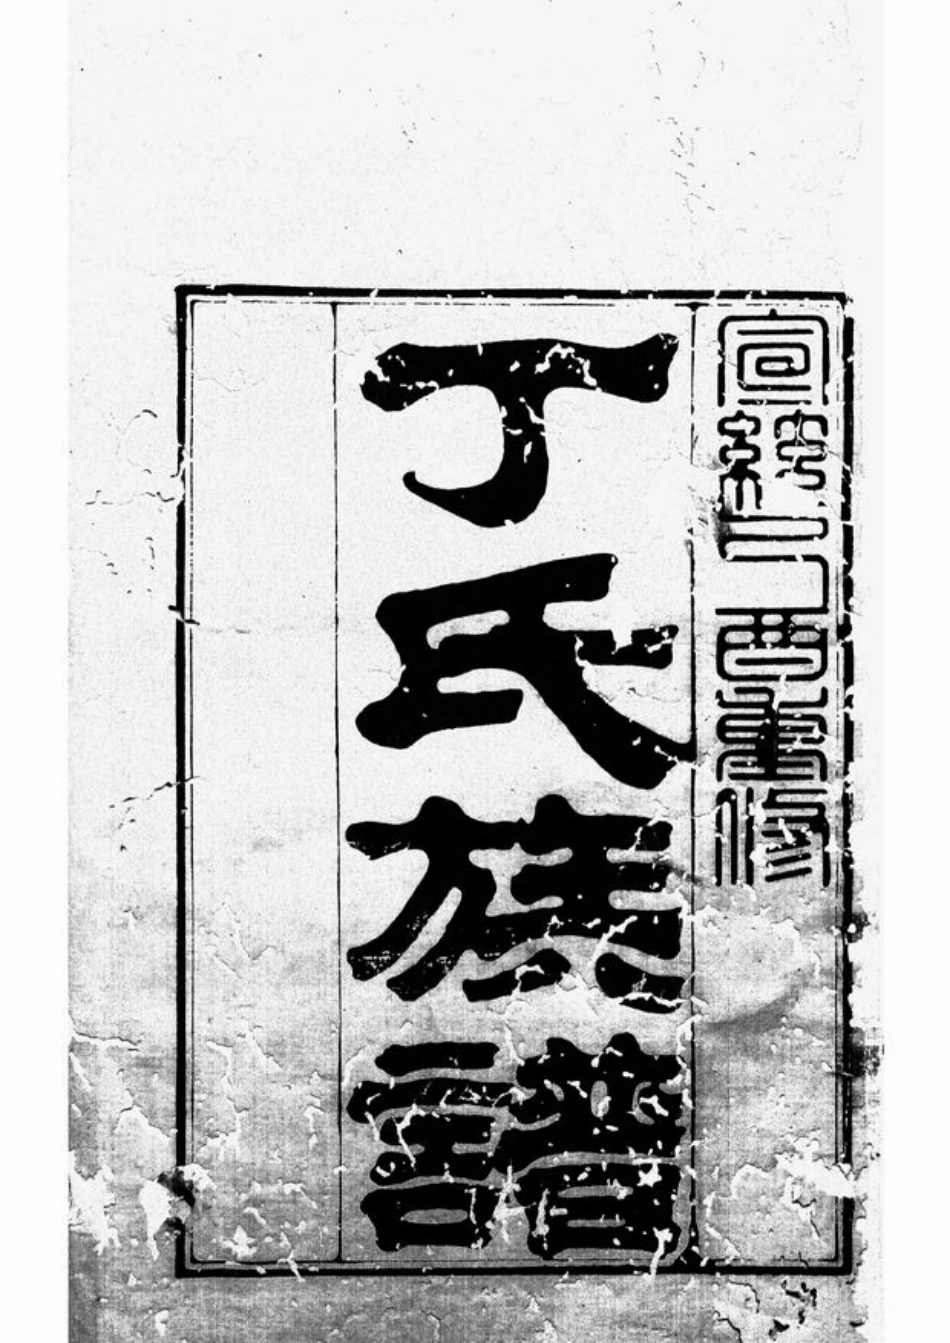 宣統己酉重修
丁氏族譜